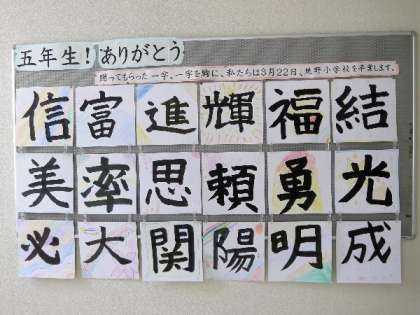 五年生！ありがとう
贈ってもらった一字、一字を胸に、私たちは3月22日、熊野小学校を卒業します。
信富進輝福結
美率思頼勇光
必大関陽明成